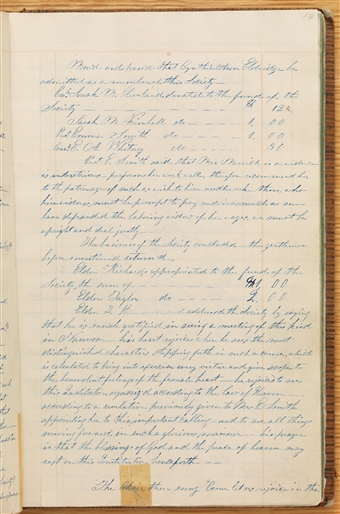 19
Mov'd and second that Cynthia Ann Eldridge be
admitted as a member of this Society—
Cou. Sarah M. Cleveland donated to the fund of the
Society $ 12½
Sarah M. Kimball do 1, 00
Prest. Emma Smith do 1, 00
Coun. E. A. Whitney do 50
Prest. E. Smith said that Mrs. Merrick is a widow
is industrious performs her work well, therefore recommend her
to the patronage of such as wish to hire needlework those who
hire widows must be prompt to pay and inasmuch as some
have defrauded the laboring widow of her wages, we must be
upright and deal justly—
The business of the Society concluded the gentlemen
before mentioned return'd—
Elder Richards appropriated to the fund of the
Society, the sum of $1, 00
Elder Taylor do 2, 00
Elder T. address'd the Society by saying
that he is much gratified in seeing a meeting of this kind
in Nauvoo his heart rejoices when he sees the most
distinguished characters stepping forth in such a cause, which
is calculated to bring into exercise every virtue and give scope to
the benevolent feelings of the female heart he rejoices to see
this Institution organiz'd according to the law of Heaven
according to a revelation previously given to Mrs. E. Smith
appointing her to this important calling and to see all things
moving forward in such a glorious manner his prayer
is that the blessings of God and the peace of heaven may
rest on this Institution henceforth
The Choir then sung "Come let us rejoice in the